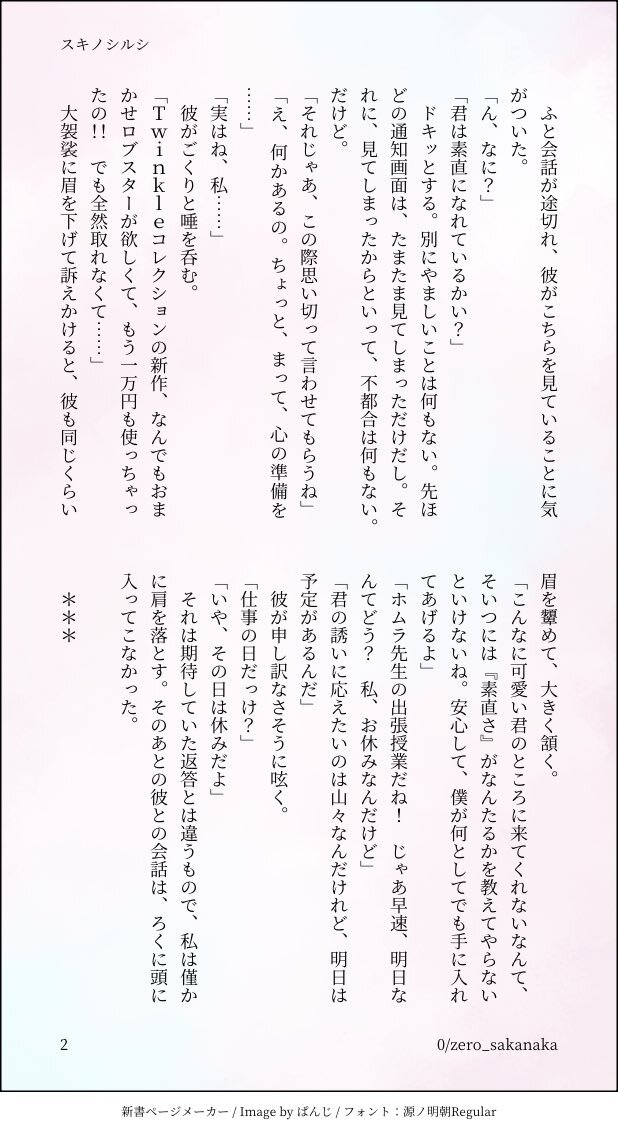 スキノシルシ
　ふと会話が途切れ、彼がこちらを見ていることに気
がついた。
「ん、なに？」
「君は素直になれているかい？」
　ドキッとする。別にやましいことは何もない。先ほ
どの通知画面は、たまたま見てしまっただけだし。そ
れに、見てしまったからといって、不都合は何もない。
だけど。
「それじゃあ、この際思い切って言わせてもらうね」
「え、何かあるの。ちょっと、まって、心の準備を
……」
「実はね、私……」
　彼がごくりと唾を呑む。
「Ｔｗｉｎｋｌｅコレクションの新作、なんでもおま
かせロブスターが欲しくて、もう一万円も使っちゃっ
たの!!　でも全然取れなくて……」
　大袈裟に眉を下げて訴えかけると、彼も同じくらい
眉を顰めて、大きく頷く。
「こんなに可愛い君のところに来てくれないなんて、
そいつには『素直さ』がなんたるかを教えてやらない
といけないね。安心して、僕が何としてでも手に入れ
てあげるよ」
「ホムラ先生の出張授業だね！　じゃあ早速、明日な
んてどう？　私、お休みなんだけど」
「君の誘いに応えたいのは山々なんだけれど、明日は
予定があるんだ」
　彼が申し訳なさそうに呟く。
「仕事の日だっけ？」
「いや、その日は休みだよ」
　それは期待していた返答とは違うもので、私は僅か
に肩を落とす。そのあとの彼との会話は、ろくに頭に
入ってこなかった。
＊＊＊
2
0/zero_sakanaka
新書ページメーカー / Image by ぱんじ / フォント：源ノ明朝Regular